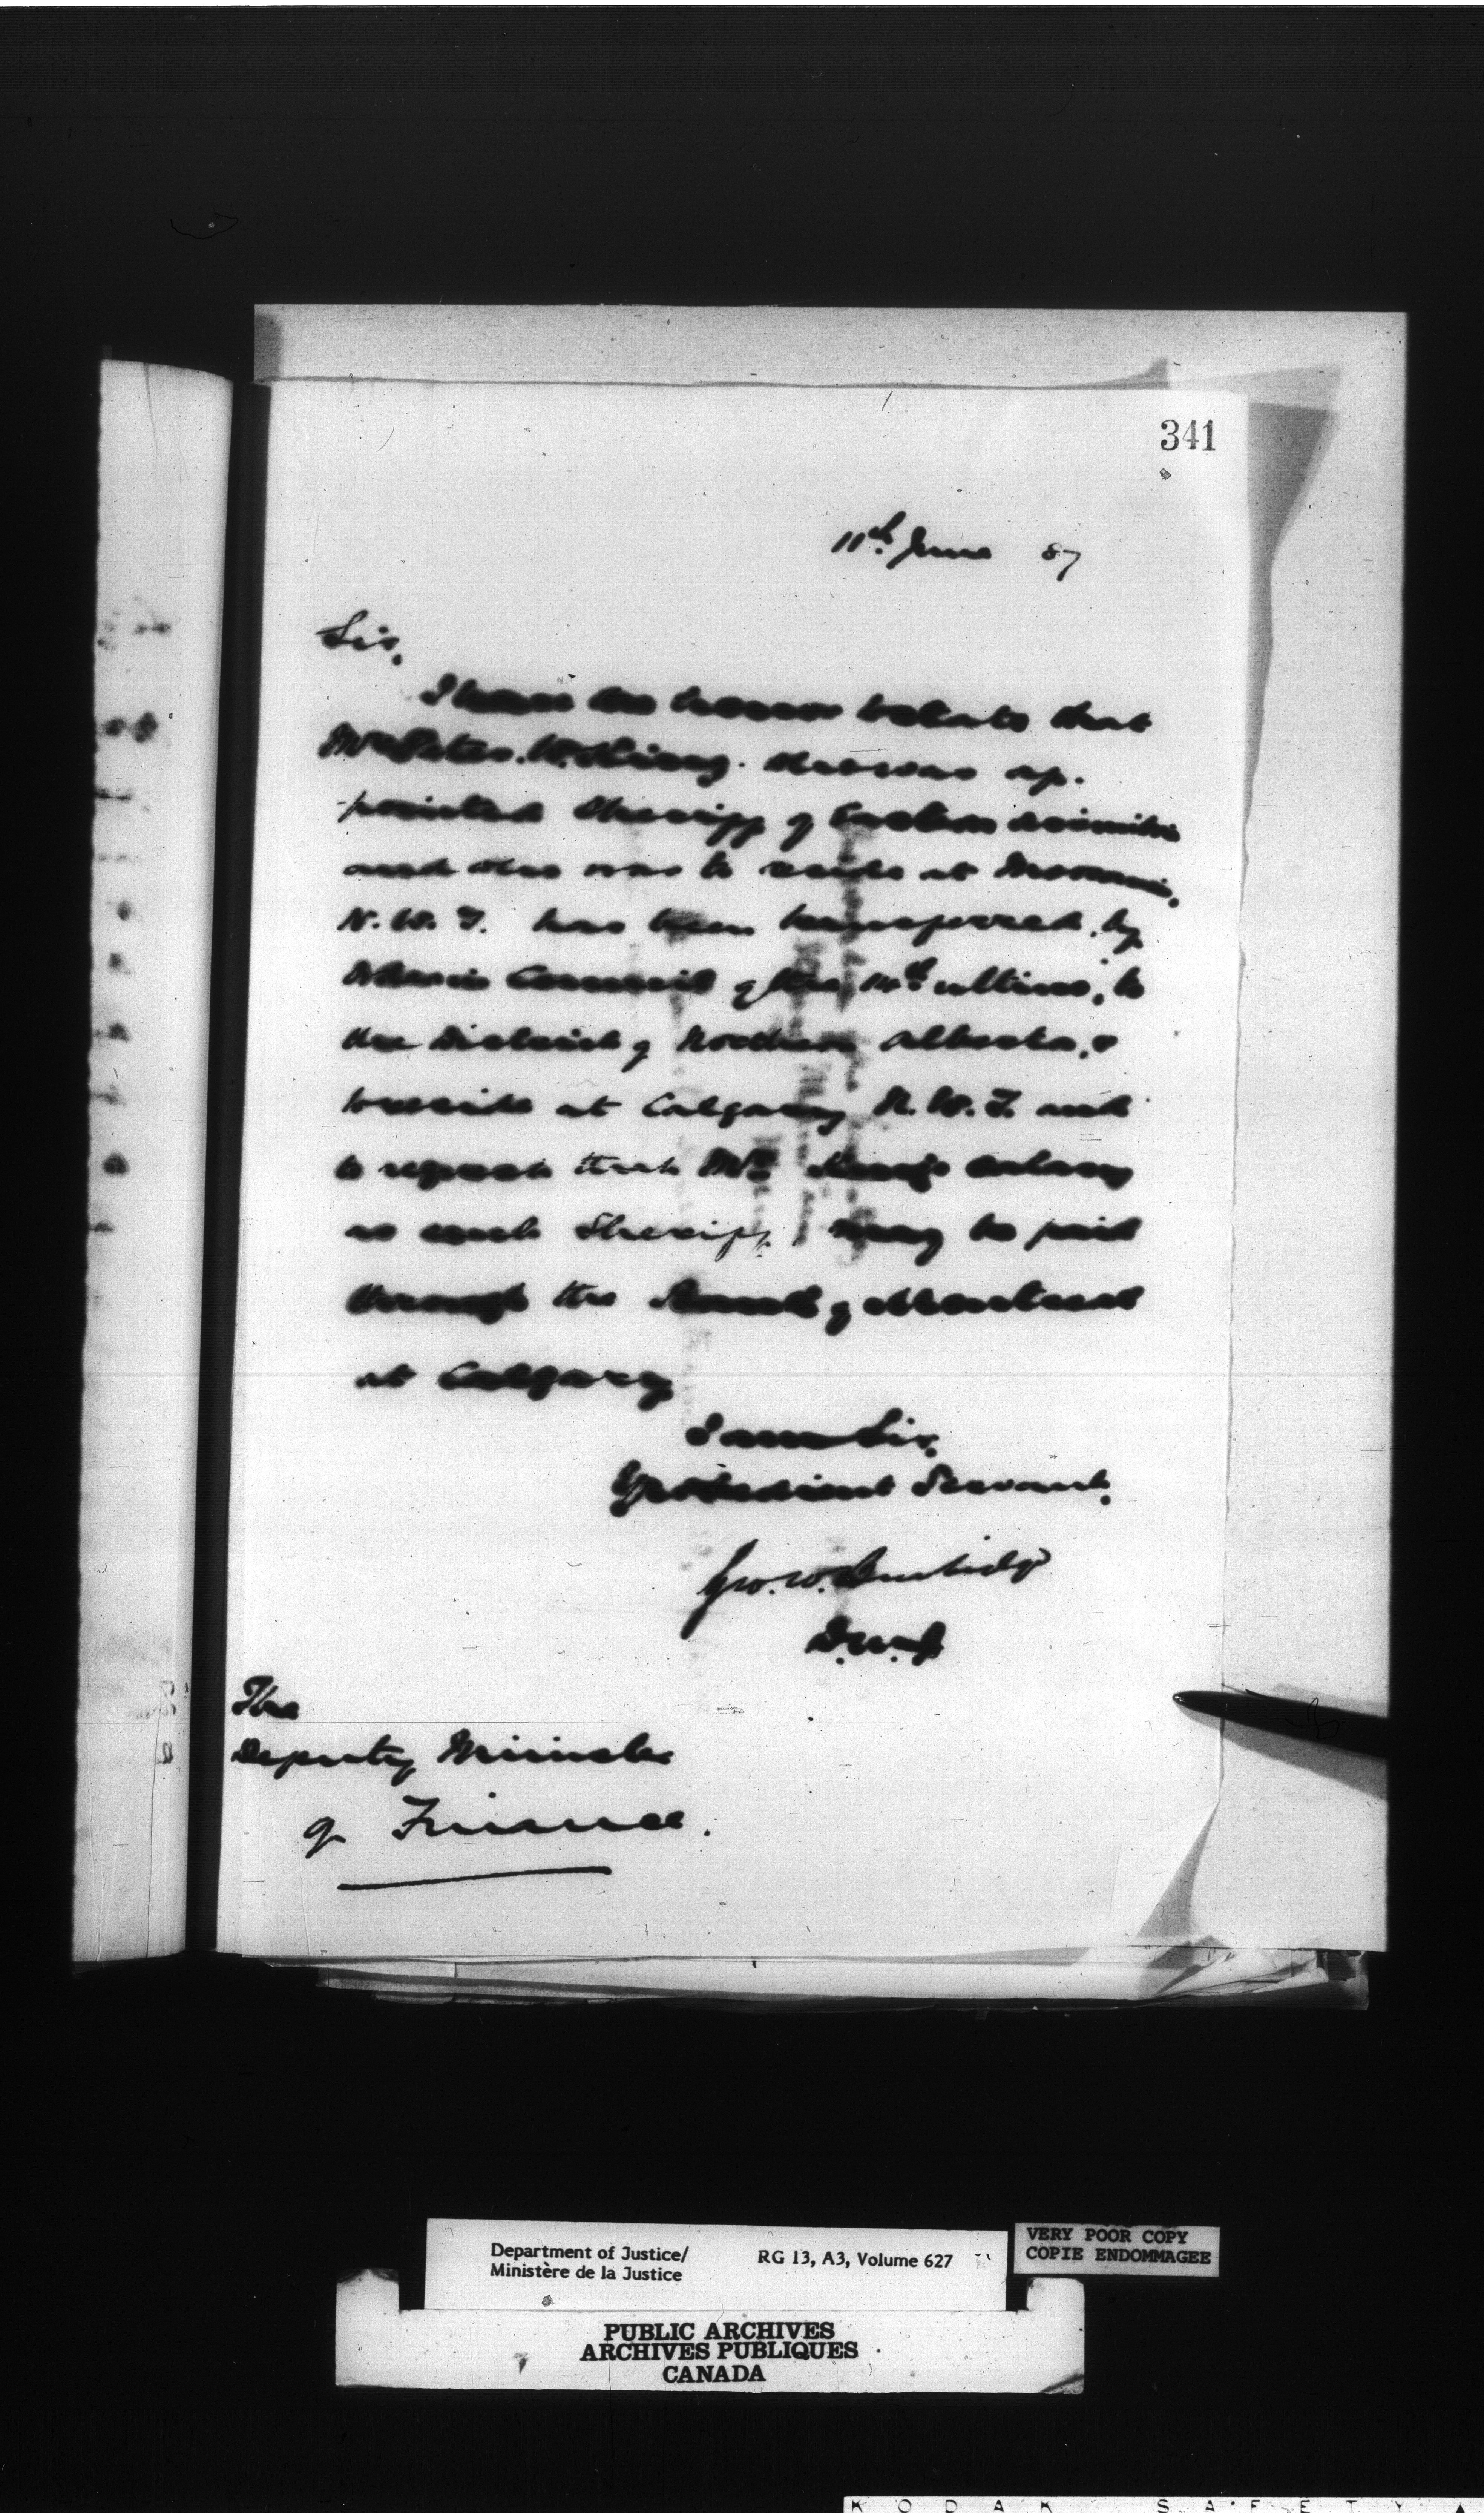 341
11th June 87
Sir,
I have the honor to state that
Mr Peter W. King. who was ap-
pointed Sheriff of Eastern Assiniboia
and who was to reside at Moosomin,
N.W.T. has been transferred, by
Order in Council of the 14th ultimo, to
the District of Northern Alberta, &
to reside at Calgary N.W.T. and
to request that Mr King's salary
as such Sheriff may be paid
through the Bank of Montreal
at Calgary
I am Sir,
Yr obedient Servant,
Geo. W. Burbidge
D.M.J
The
Deputy Minister
of Finance.
Department of Justice/
Ministère de la Justice
RG 13, A3, Volume 627
VERY POOR COPY
COPIE ENDOMMAGEE
PUBLIC ARCHIVES
ARCHIVES PUBLIQUES
CANADA
KODAK SAFETY